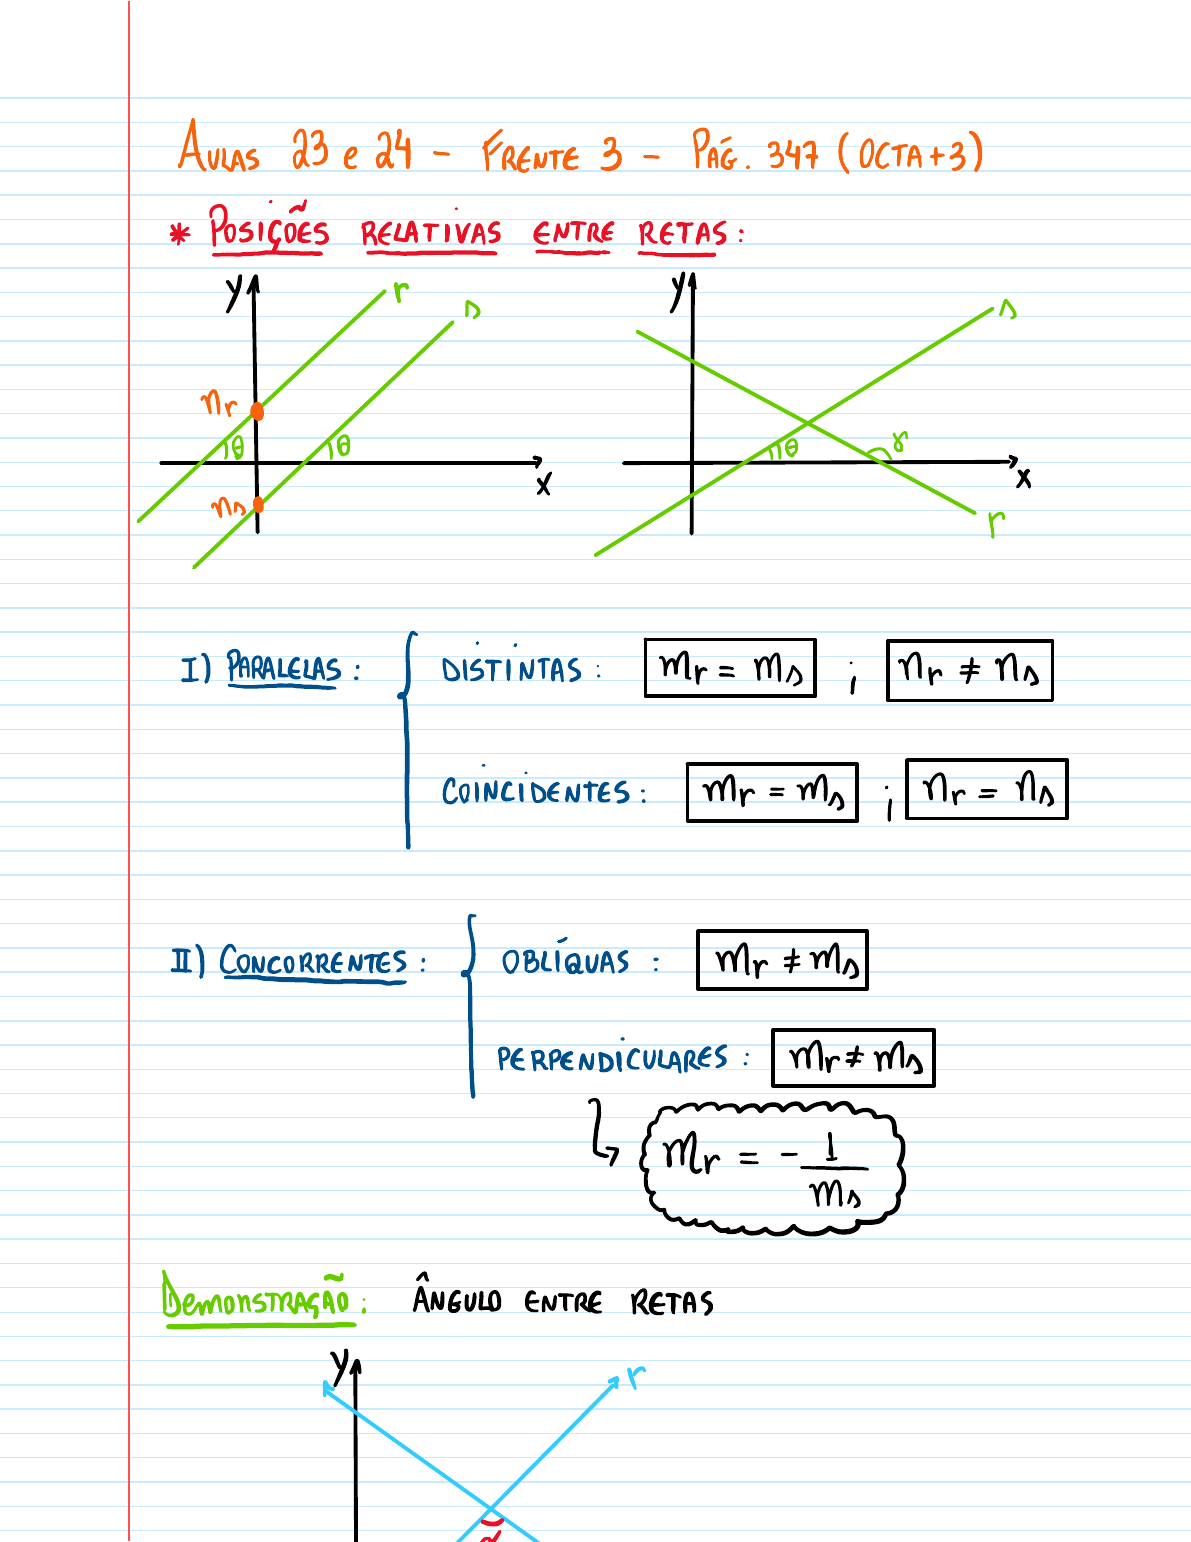 AULAS 23 e 24 - FRENTE 3 - PÁG. 347 (OCTA+3)
* POSIÇÕES RELATIVAS ENTRE RETAS:
y r s
nr θ θ
ns x
y s
θ γ
x
r
I) PARALELAS: DISTINTAS: mr = ms ; nr ≠ ns
COINCIDENTES: mr = ms ; nr = ns
II) CONCORRENTES: OBLÍQUAS: mr ≠ ms
PERPENDICULARES: mr ≠ ms
mr = - 1/ms
DEMONSTRAÇÃO: ÂNGULO ENTRE RETAS
y r